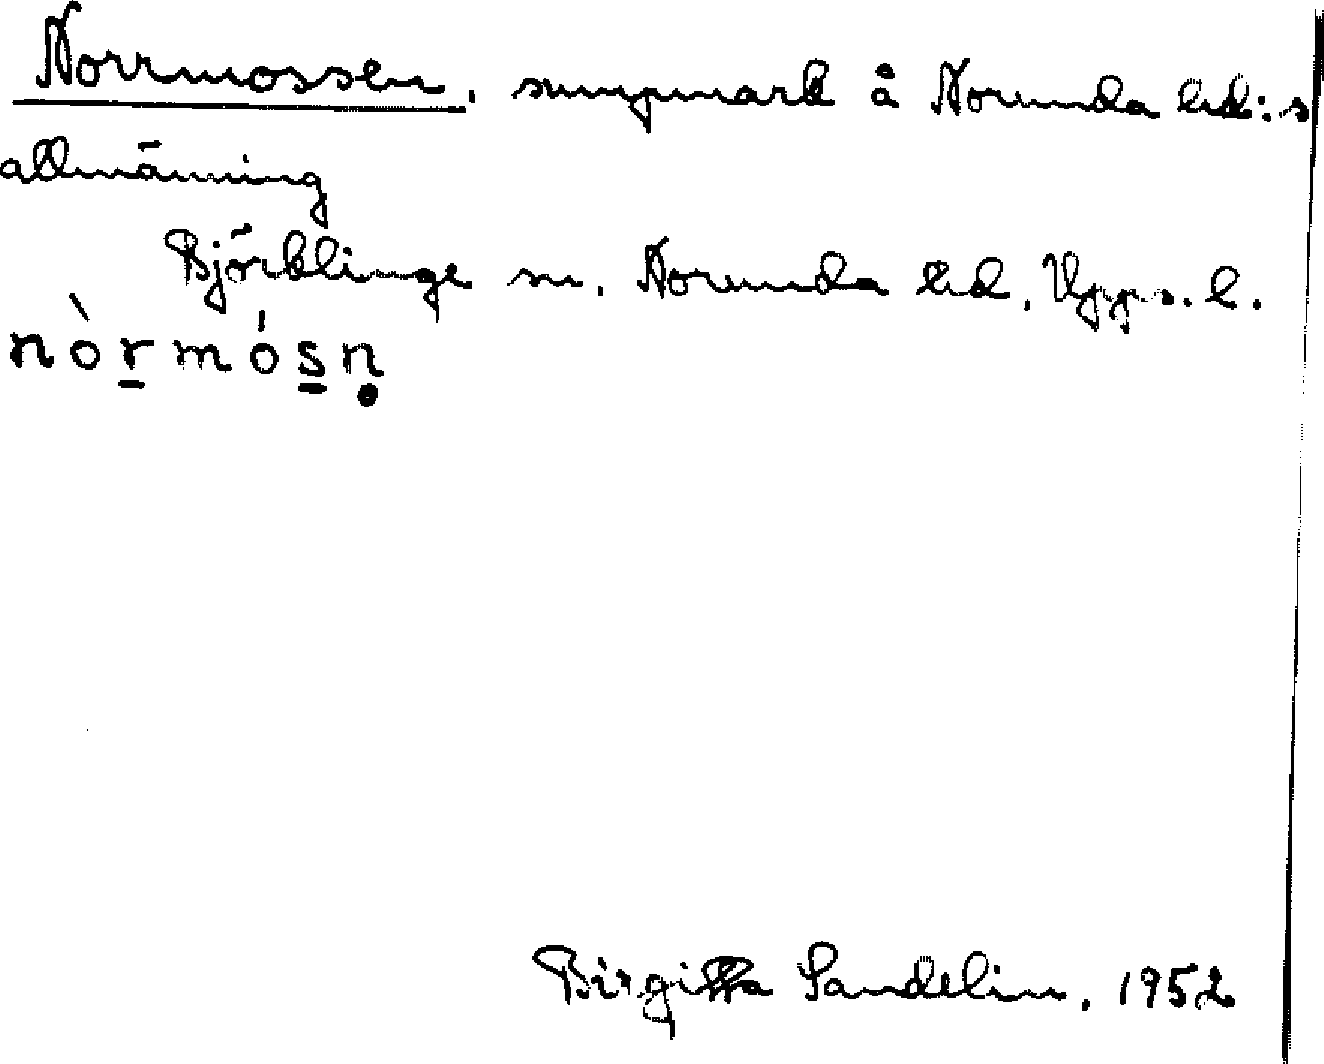 Norrmossen, sumpmark å Norunda hd:s
allmänning
Björklinge sn. Norunda hd. Upps. l.
nòr̠mós̠ṇ
Birgitta Sandelin, 1952